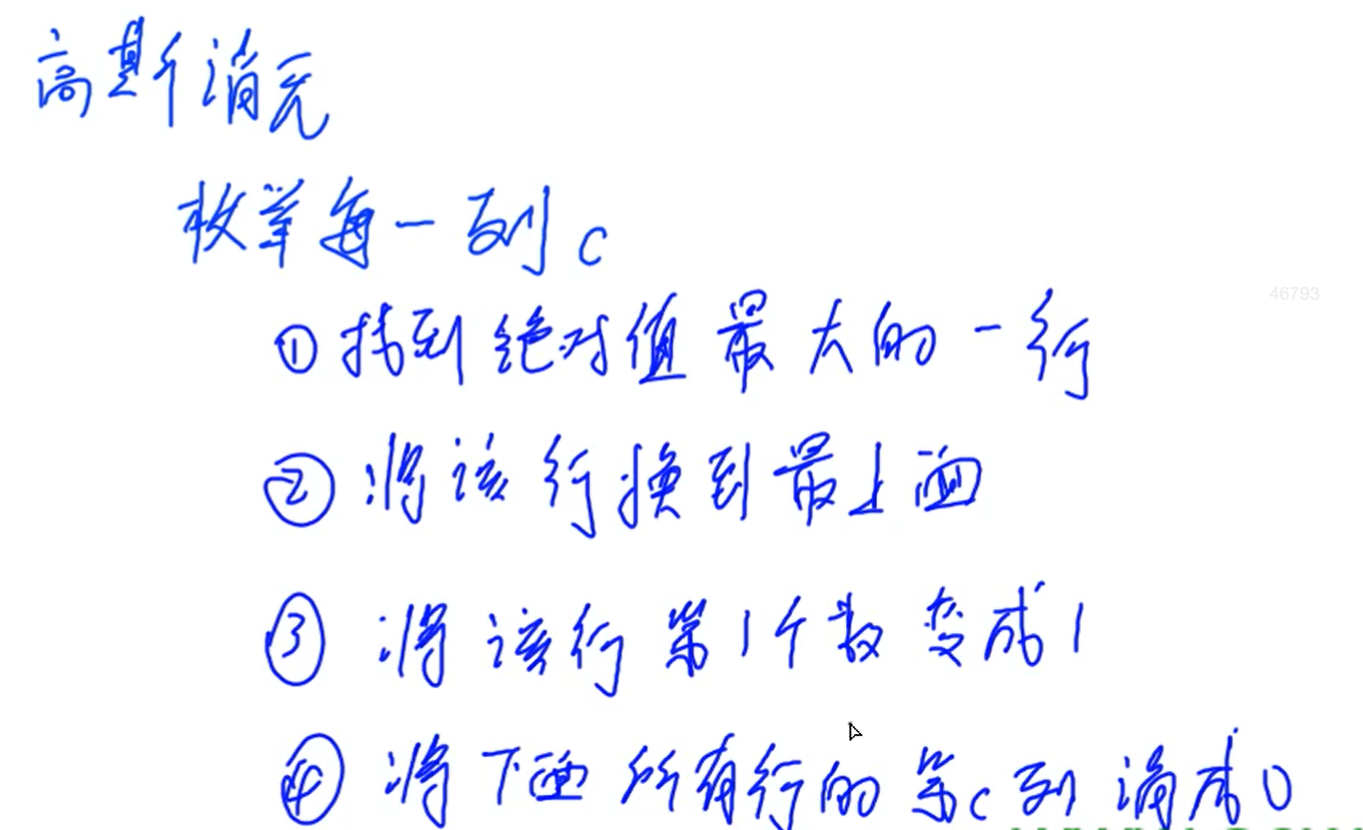 高斯消元
枚举每一列c
46793
①找到绝对值最大的一行
②将该行换到最上面
③将该行第1个数变成1
④将下面所有行的第c列消成0